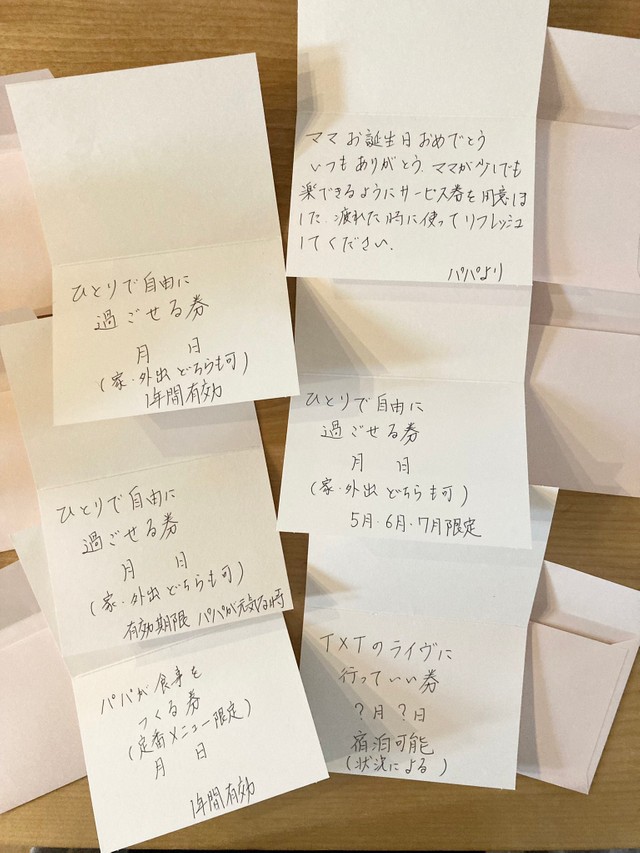 ママ お誕生日 おめでとう
いつも ありがとう、ママが少しでも
楽できるように サービス券を用意しま
した。疲れた時に使ってリフレッシュ
してください。
パパより
ひとりで自由に
過ごせる券
月 日
(家・外出 どちらも可)
1年間有効
ひとりで自由に
過ごせる券
月 日
(家・外出 どちらも可)
5月・6月・7月限定
ひとりで自由に
過ごせる券
月 日
(家・外出 どちらも可)
有効期限 パパが元気な時
TXTのライヴに
行っていい券
?月 ?日
宿泊可能
(状況による)
パパが食事を
つくる券
(定番メニュー限定)
月 日
1年間有効